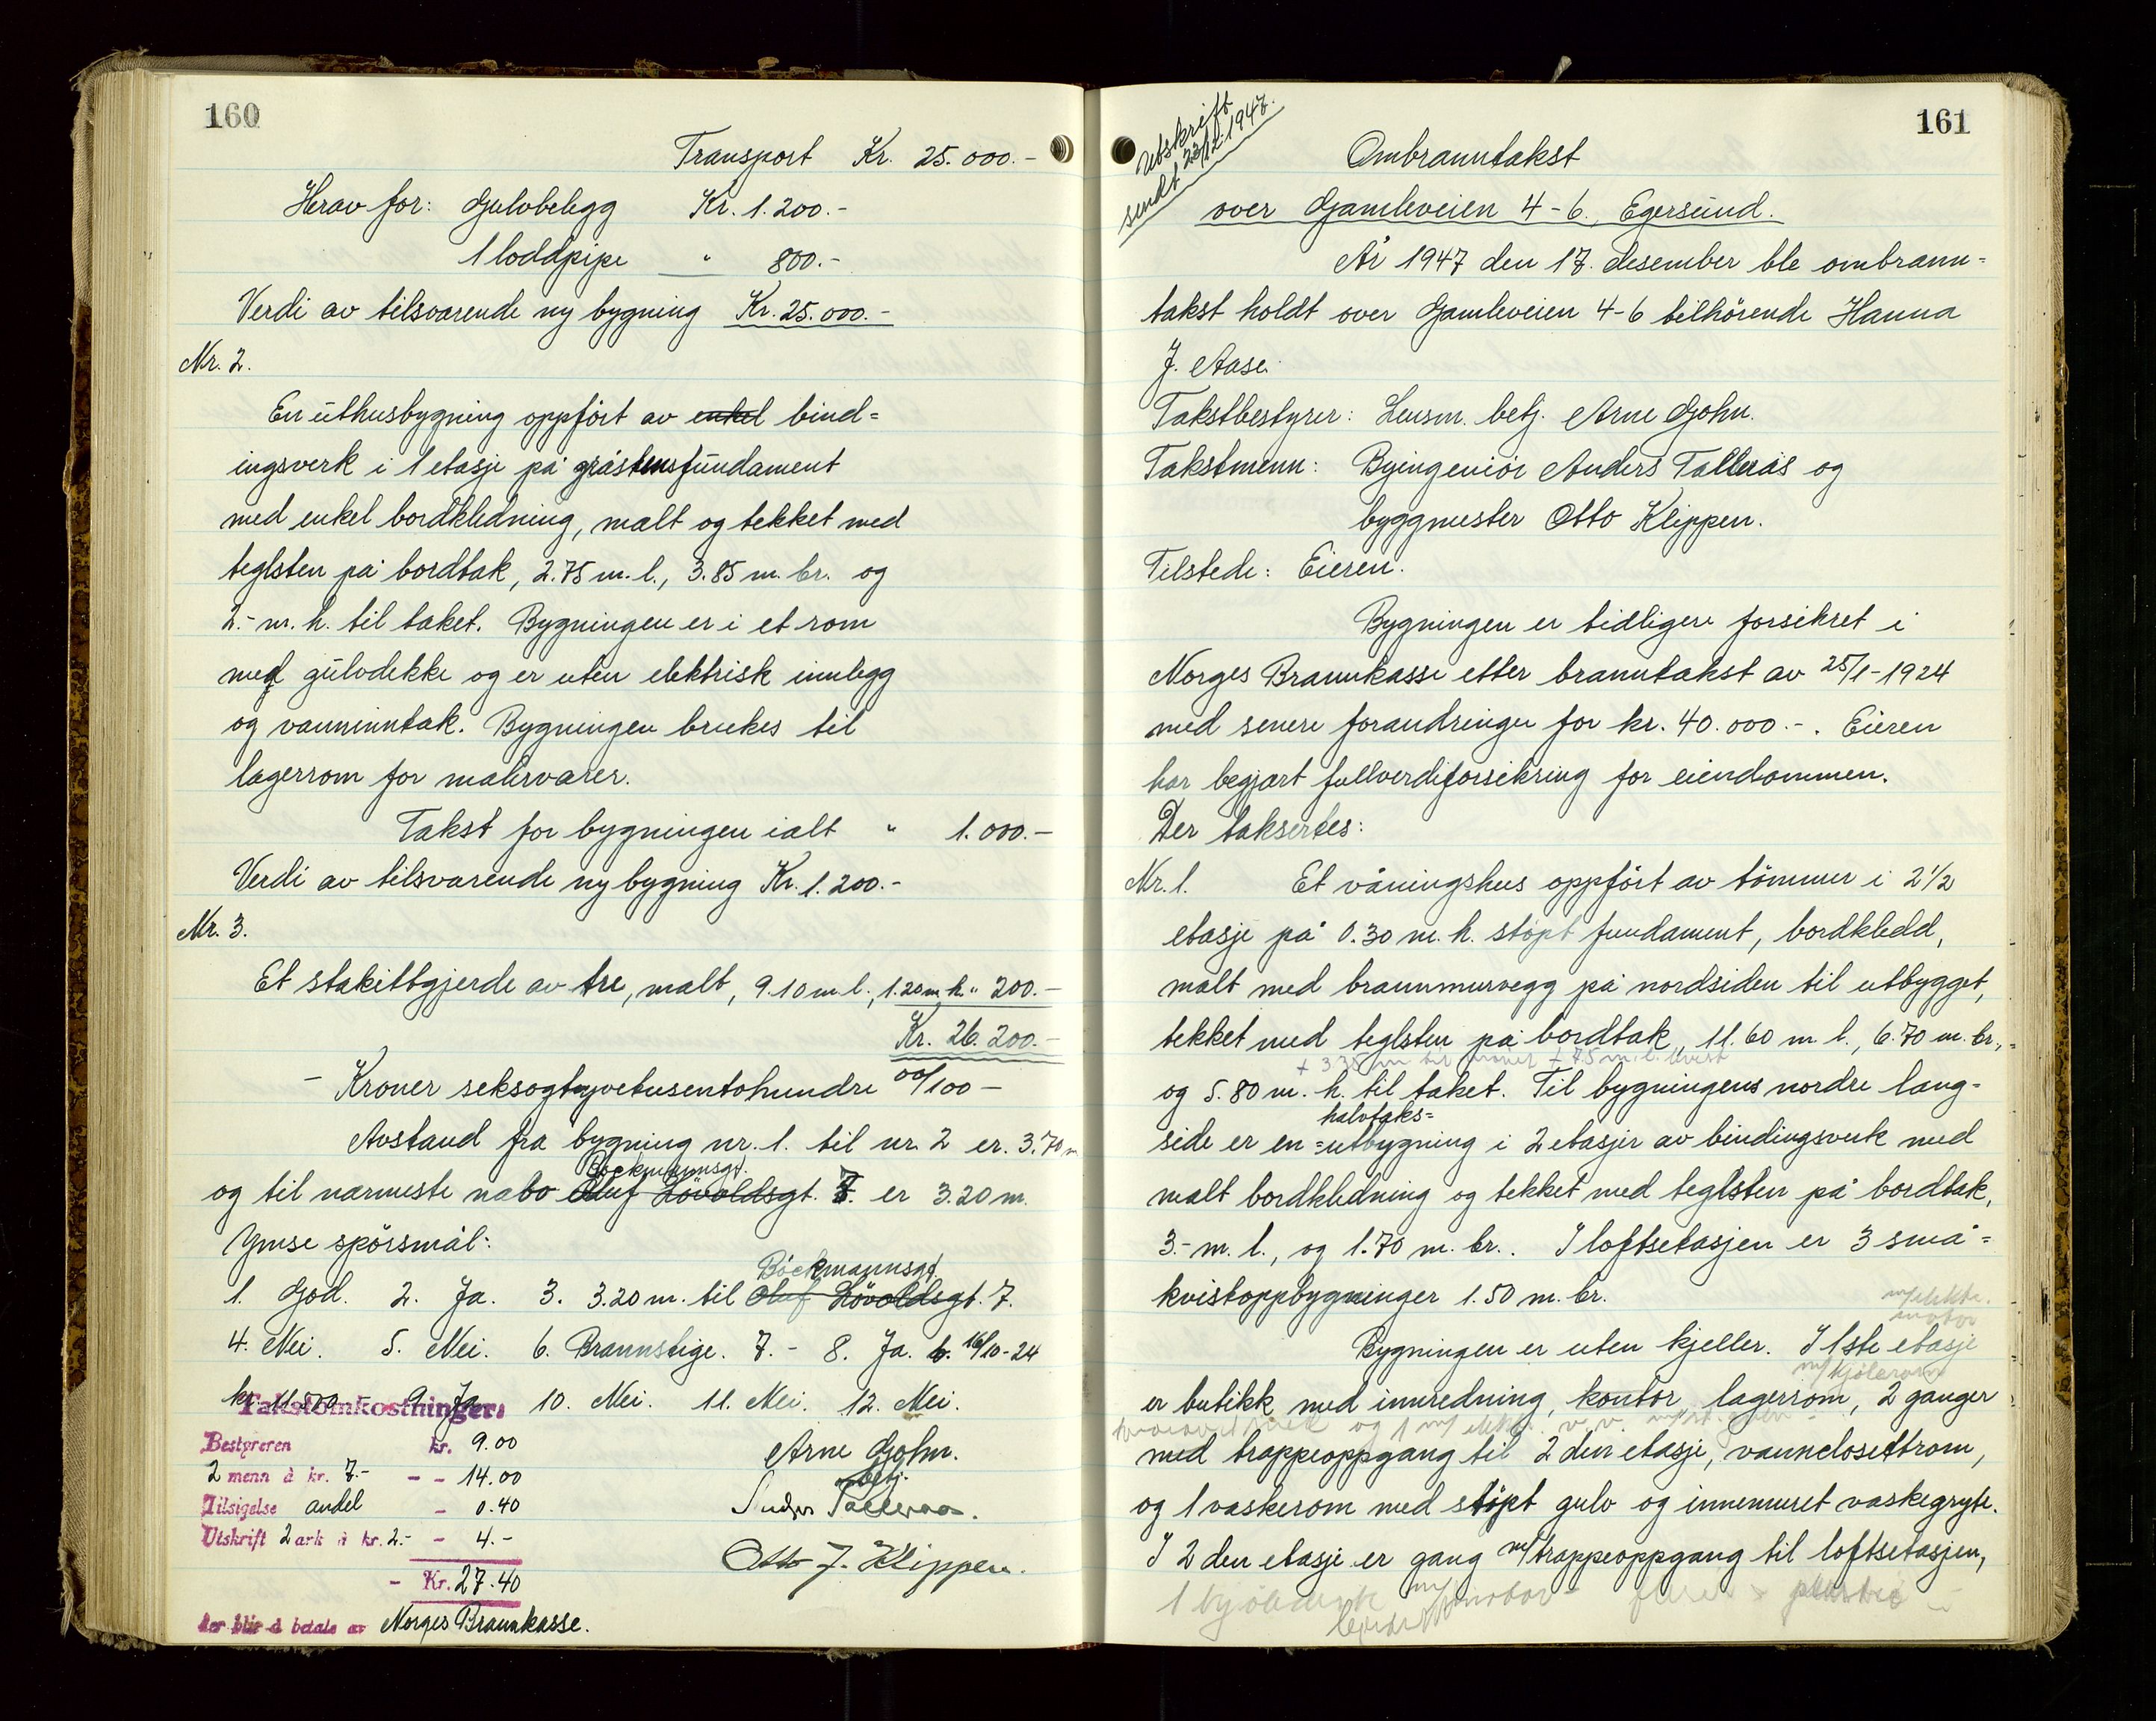 160
Transport Kr. 25.000.-
Herav for: Gulvbelegg Kr. 1.200.-
1 loddpipe " 800.-
Verdi av tilsvarende ny bygning Kr. 25.000.-
Nr. 2.
En uthusbygning oppført av enkel bind=
ingsverk i 1 etasje på gråstensfundament
med enkel bordkledning, malt og tekket med
teglsten på bordtak, 2.75 m. l., 3.85 m. br. og
2.- m. h. til taket. Bygningen er i et rom
med gulvdekke og er uten elektrisk innlegg
og vanninntak. Bygningen brukes til
lagerrom for malervarer.
Takst for bygningen ialt " 1.000.-
Verdi av tilsvarende ny bygning Kr. 1.200.-
Nr. 3.
Et stakittgjerde av tre, malt, 9.10 m l., 1.20 m h. " 200.-
Kr. 26.200.-
- Kroner seksogtyvetusentohundre 00/100 -
Avstand fra bygning nr. 1. til nr. 2 er. 3.70 m
Böckmannsgt.
og til nærmeste nabo Oluf Lövoldsgt. 7. er 3.20 m.
Ymse spörsmål:
Böckmannsgt.
1. God. 2. Ja. 3. 3.20 m. til Oluf Lövoldsgt. 7.
4. Nei. 5. Nei. 6. Brannstige. 7. - 8. Ja. 16/10-24
kr. 11.500 - 9. Ja 10. Nei. 11. Nei. 12. Nei.
Takstomkostninger:
Bestyreren kr. 9.00
2 menn à kr. 7.- - - 14.00
Tilsigelse andel - 0.40
Utskrift 2 ark à kr. 2.- - 4.-
- Kr. 27.40
der blir å betale av Norges Brannkasse.
Arne Gjohn.
betj.
Anders Talleraas.
Otto J. Klippen.
161
Utskrift
sendt 22/12.1947.
Ombranntakst
over Gamleveien 4-6, Egersund.
År 1947 den 17. desember ble ombrann=
takst holdt over Gamleveien 4-6 tilhörende Hanna
J. Aase.
Takstbestyrer: Lensm. betj. Arne Gjohn.
Takstmenn: Byingeniör Anders Tallerås og
byggmester Otto Klippen.
Tilstede: Eieren.
Bygningen er tidligere forsikret i
Norges Brannkasse etter branntakst av 25/1-1924
med senere forandringer for kr. 40.000.-. Eieren
har begjært fullverdiforsikring for eiendommen.
Der taksertes:
Nr. 1. Et våningshus oppfört av tömmer i 2 1/2
etasje på 0.30 m. h. stöpt fundament, bordkledd,
malt med brannmurvegg på nordsiden til utbygget,
tekket med teglsten på bordtak, 11.60 m. l., 6.70 m. br.,
og 5.80 m. h. til taket. Til bygningens nordre lang=
halvtaks=
side er en =utbygning i 2 etasjer av bindingsverk med
malt bordkledning og tekket med teglsten på bordtak,
3.- m. l., og 1.70 m. br.. I loftsetasjen er 3 små=
kvistoppbygninger 1.50 m. br.
m/elektr.
motor
Bygningen er uten kjeller. I 1ste etasje
m/kjölerom
er butikk med innredning, kontor, lagerrom, 2 ganger
med trappeoppgang til 2 den etasje, vannclosettrom,
og 1 vaskerom med stöpt gulv og innemuret vaskegryte.
I 2 den etasje er gang m/trappeoppgang til loftsetasjen,
1 kjöledisk m/motor